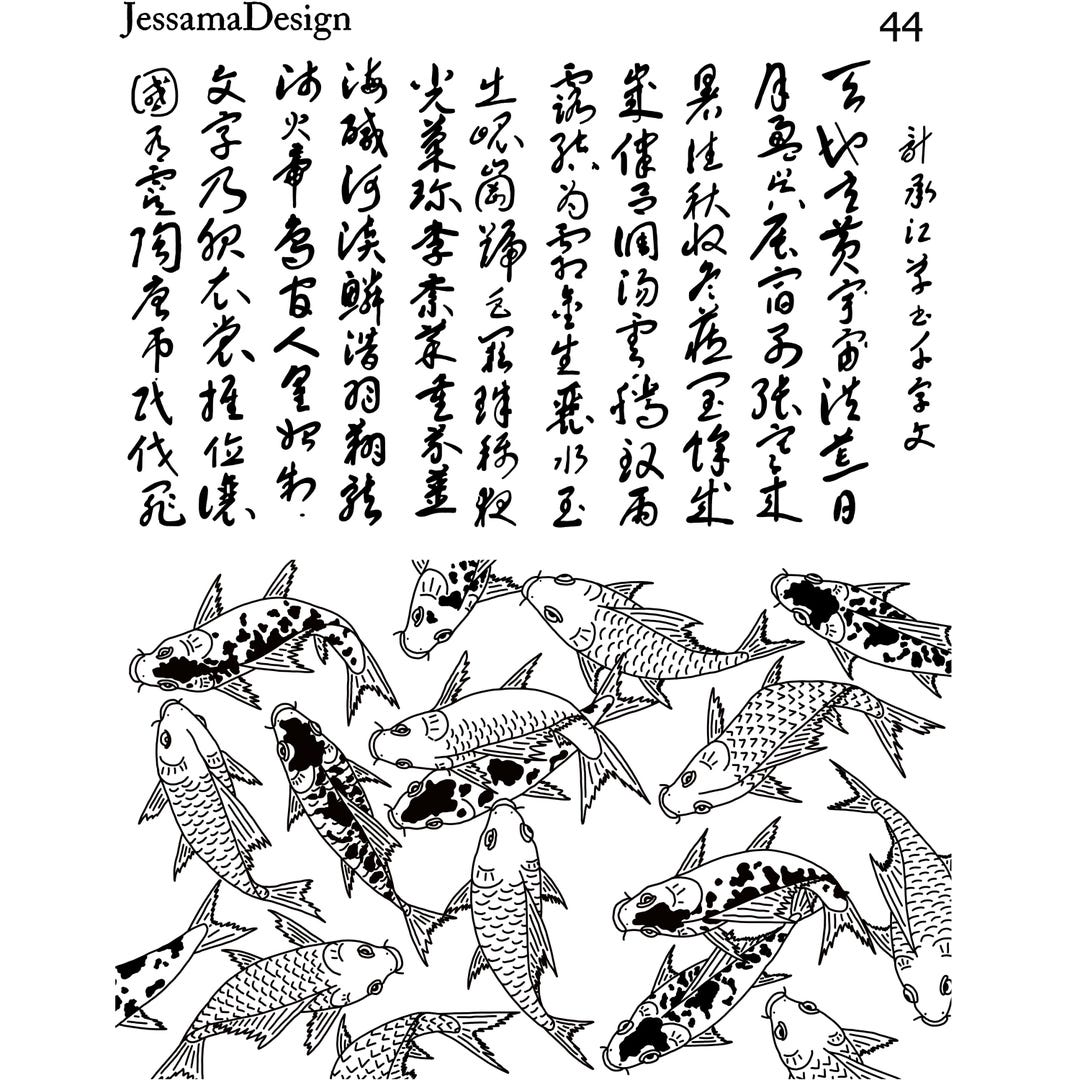 JessamaDesign
44
計承江草书千字文
天地玄黄宇宙洪荒日
月盈昃辰宿列张寒来
暑往秋收冬藏閏餘成
歲律吕調陽雲騰致雨
露结为霜金生麗水玉
出崐崗號巨闕珠稱夜
光菓珍李柰菜重芥薑
海鹹河淡鱗潛羽翔龍
师火帝鸟官人皇始制
文字乃服衣裳推位讓
國有虞陶唐吊民伐罪